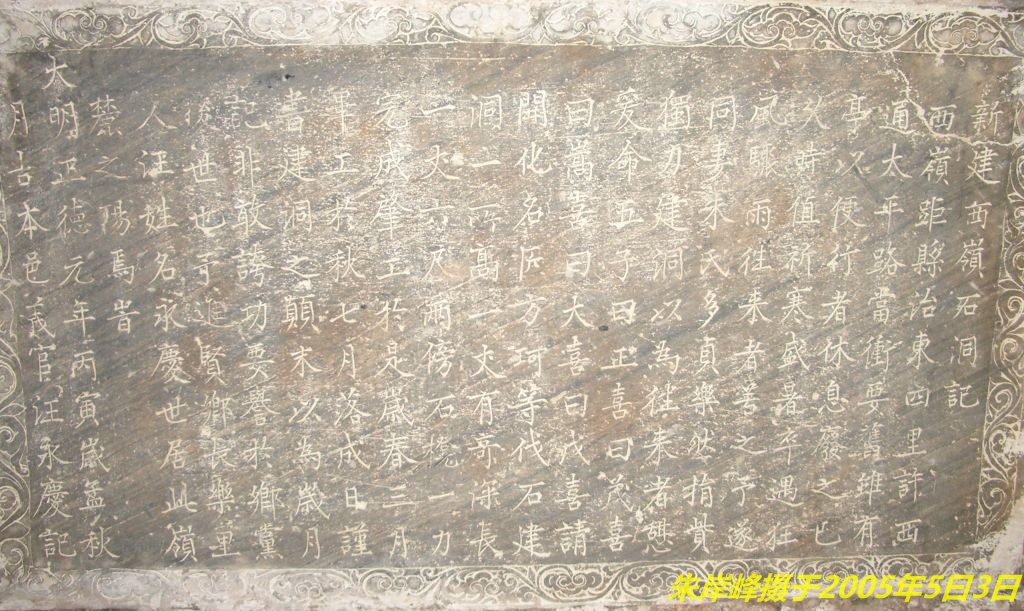 新建西嶺石洞記
西嶺距縣治東四里許西
通太平路當衝要舊雖有
亭以便行者休息廢之已
久時值祈寒盛暑卒遇狂
風驟雨往来者苦之予遂
同妻朱氏多貞樂然捐貲
獨力建洞以為往来者憩
爰命五子曰正喜曰茂喜
曰萬喜曰大喜曰喜請
開化名匠方珂等伐石建
洞一所高一丈有奇深長
一丈六尺兩傍石一力
完成肇工於是歲春三月
畢工於秋七月落成日謹
書建洞之顛末以為歲月
記非敢誇功要譽於鄉黨
後世也予進賢鄉長樂里
人汪姓名永慶世居此嶺
麓之陽焉旹
大明正德元年丙寅歲孟秋
月吉本邑義官汪永慶記
朱岸峰摄于2005年5日3日